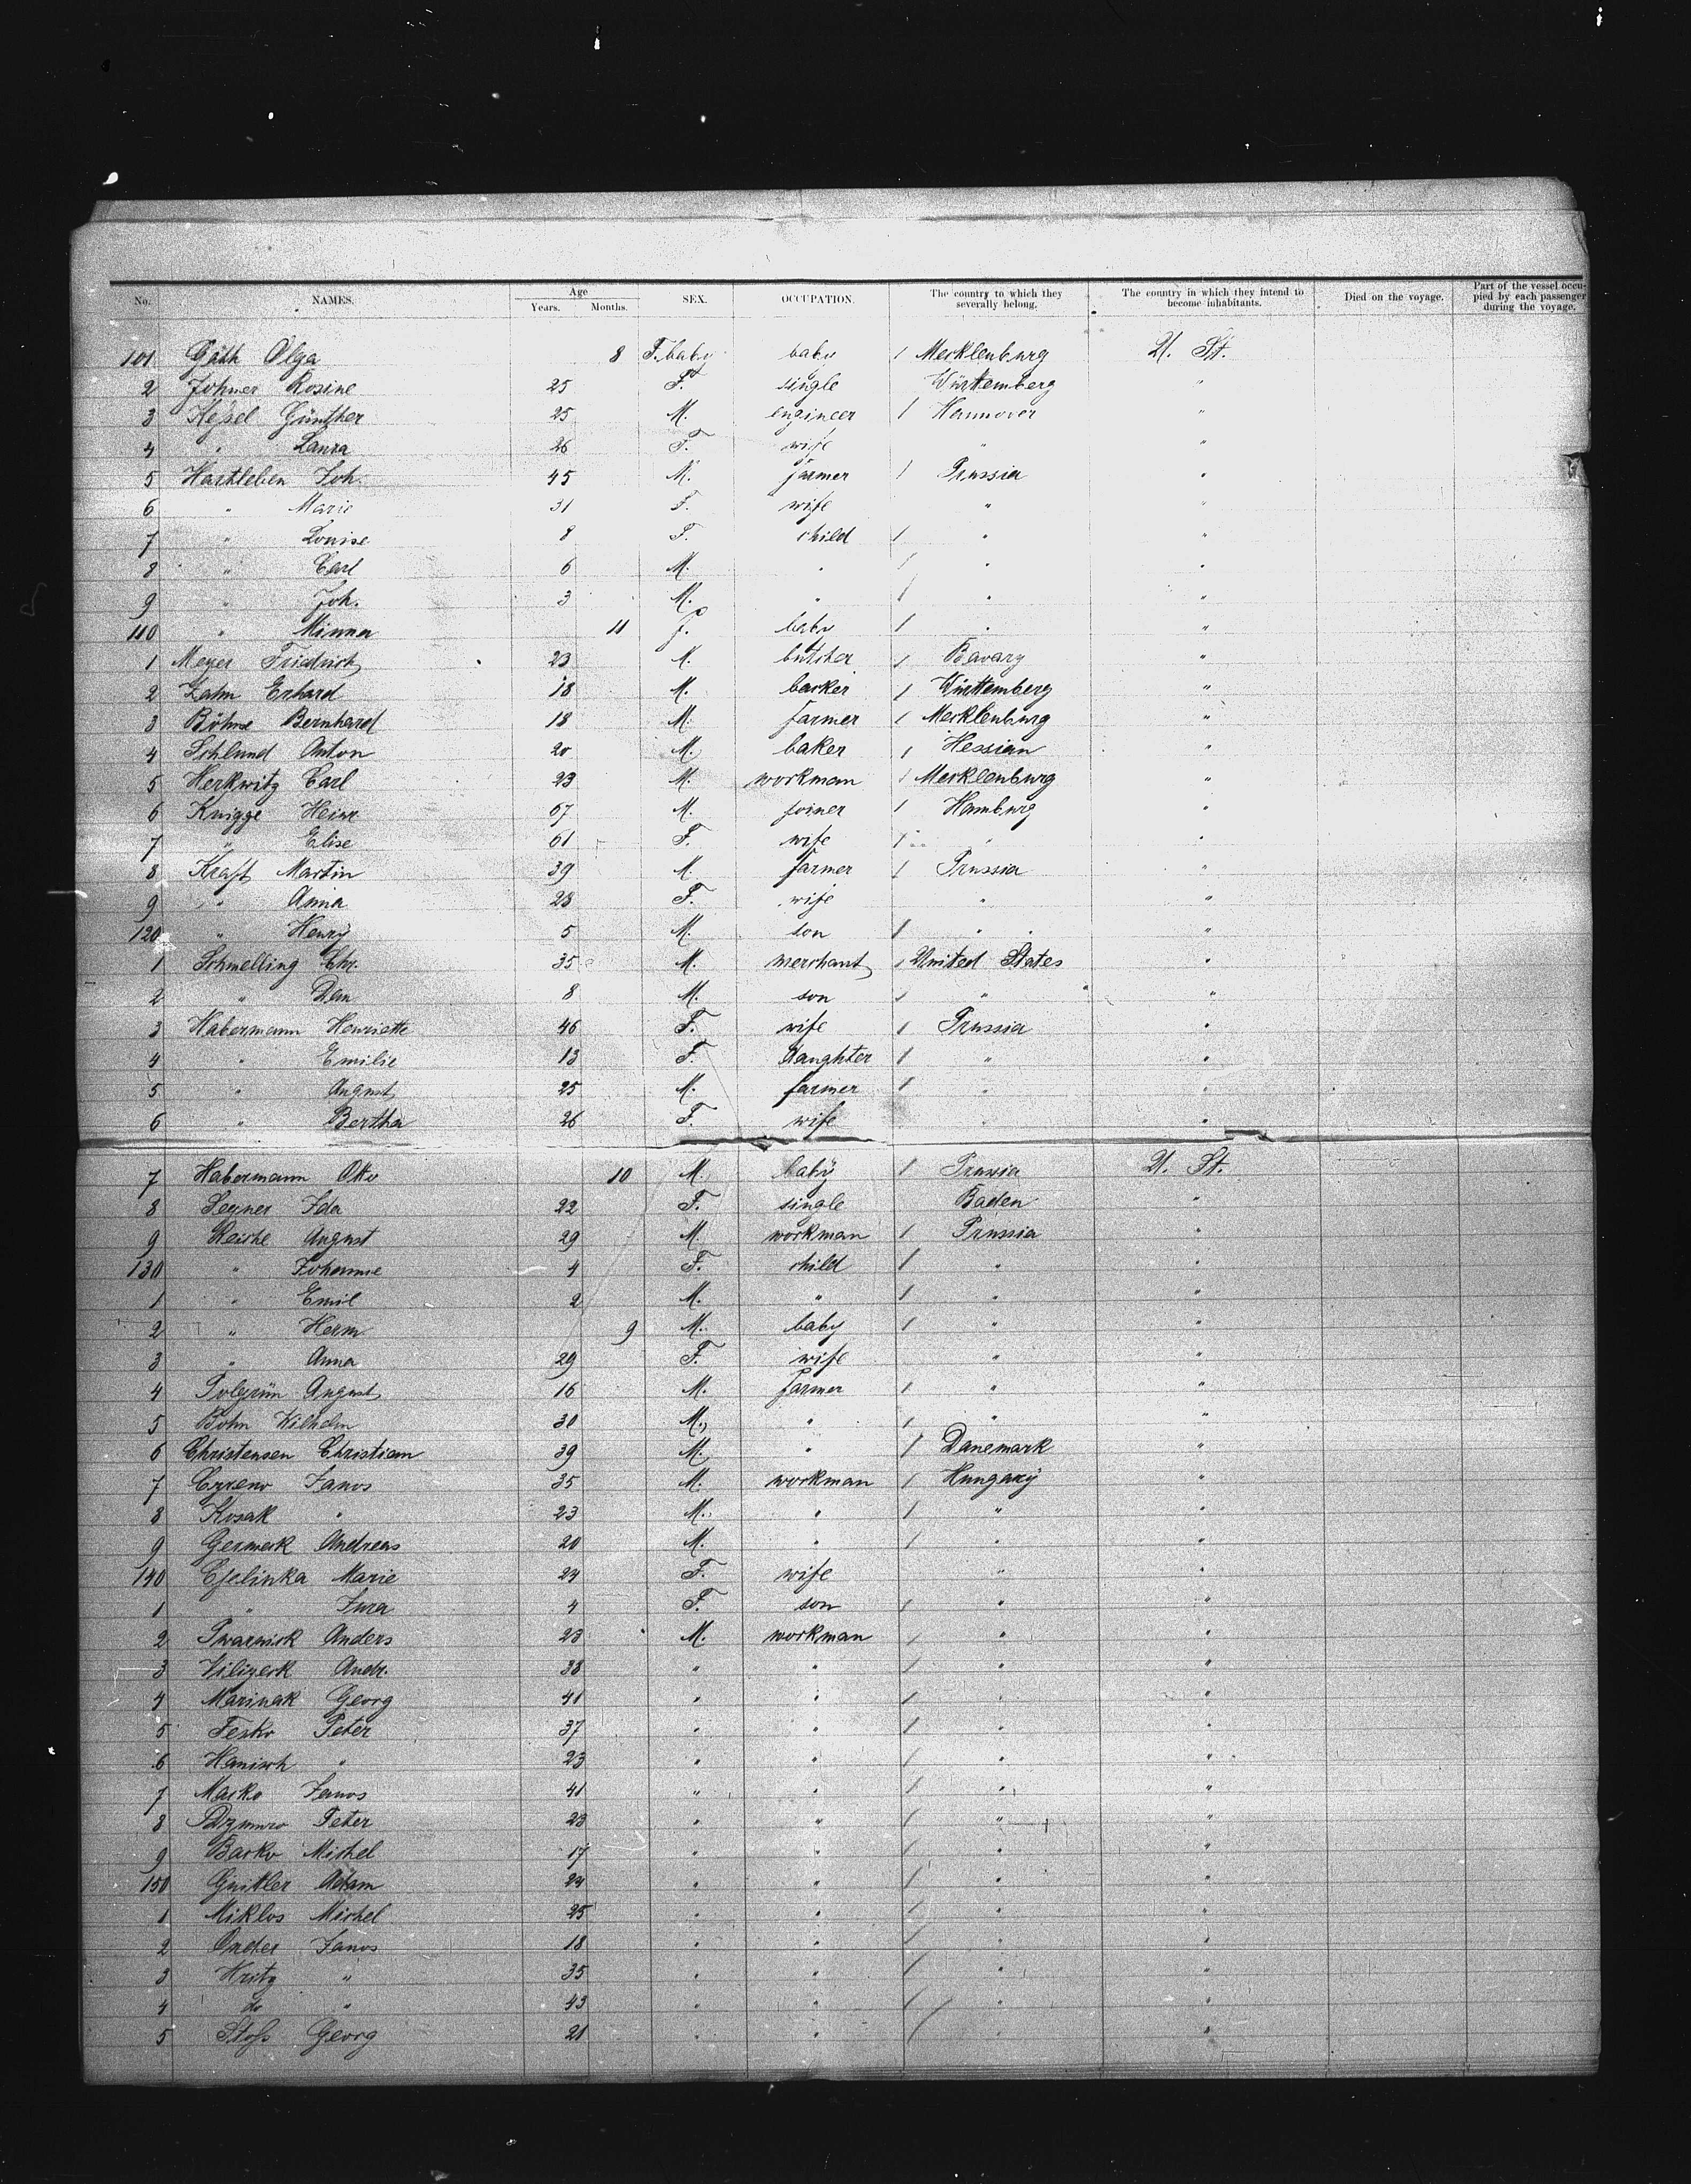 No. NAMES. Age Years. Months. SEX. OCCUPATION. The country to which they severally belong. The country in which they intend to become inhabitants. Died on the voyage. Part of the vessel occupied by each passenger during the voyage.
101 Gäth Olga 8 F. baby baby 1 Mecklenburg U. St.
2 Johner Rosine 25 F. single Würtemberg "
3 Hessel Günther 25 M. engineer 1 Hannover "
4 " Laura 26 F. wife " "
5 Hartleben Joh 45 M. farmer 1 Prussia "
6 " Marie 31 F. wife " "
7 " Louise 8 F. child 1 " "
8 " Carl 6 M. " 1 " "
9 " Joh. 3 M. " 1 " "
110 " Minna 11 f. baby 1 " "
1 Meyer Friedrich 23 M. butcher 1 Bavary "
2 Zahn Erhard 18 M. backer 1 Würtemberg "
3 Böhme Bernhard 18 M. farmer 1 Mecklenburg "
4 Schlund Anton 20 M. baker 1 Hessian "
5 Herkwitz Carl 23 M. workman 1 Mecklenburg "
6 Knigge Heinr 67 M. joiner 1 Hamburg "
7 " Elise 61 F. wife 1 " "
8 Kraft Martin 39 M. farmer 1 Prussia "
9 " Anna 28 F. wife " "
120 " Henry 5 M. son 1 " "
1 Schmelling Chr. 35 M. merchant 1 United States "
2 " Dan 8 M. son 1 " "
3 Habermann Henriette 46 F. wife 1 Prussia "
4 " Emilie 13 F. daughter 1 " "
5 " August 25 M. farmer 1 " "
6 " Bertha 26 F. wife " "
7 Habermann Otto 10 M. baby 1 Prussia U. St.
8 Segner Ida 22 F. single Baden "
9 Reiche August 29 M. workman 1 Prussia "
130 " Johanne 4 F. child 1 " "
1 " Emil 2 M. " 1 " "
2 " Herm 9 M. baby 1 " "
3 " Anna 29 F. wife " "
4 August 16 M. farmer 1 " "
5 Bohn Wilhelm 30 M. " 1 " "
6 Christensen Christian 39 M. " 1 Danemark "
7 Janos 35 M. workman 1 Hungary "
8 Kosak " 23 M. " 1 " "
9 Germek Andreas 20 M. " 1 " "
140 Marie 24 F. wife " "
1 " Jura 4 F. son 1 " "
2 Anders 23 M. workman 1 " "
3 Andr. 38 " " 1 " "
4 Marinak Georg 41 " " 1 " "
5 Fesko Peter 37 " " 1 " "
6 Hanisch " 23 " " 1 " "
7 Masko Janos 41 " " 1 " "
8 Peter 23 " " 1 " "
9 Barko Michel 17 " " 1 " "
150 Adam 24 " " 1 " "
1 Miklos Michel 25 " " 1 " "
2 Onder Janos 18 " " 1 " "
3 Hritz " 35 " " 1 " "
4 do " 43 " " 1 " "
5 Stofs Georg 21 " " 1 " "